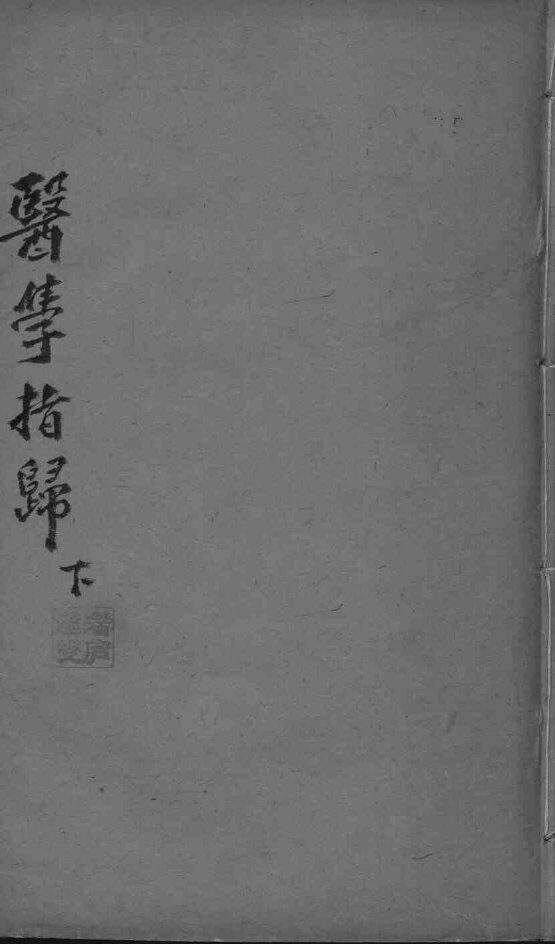 醫學指歸
下